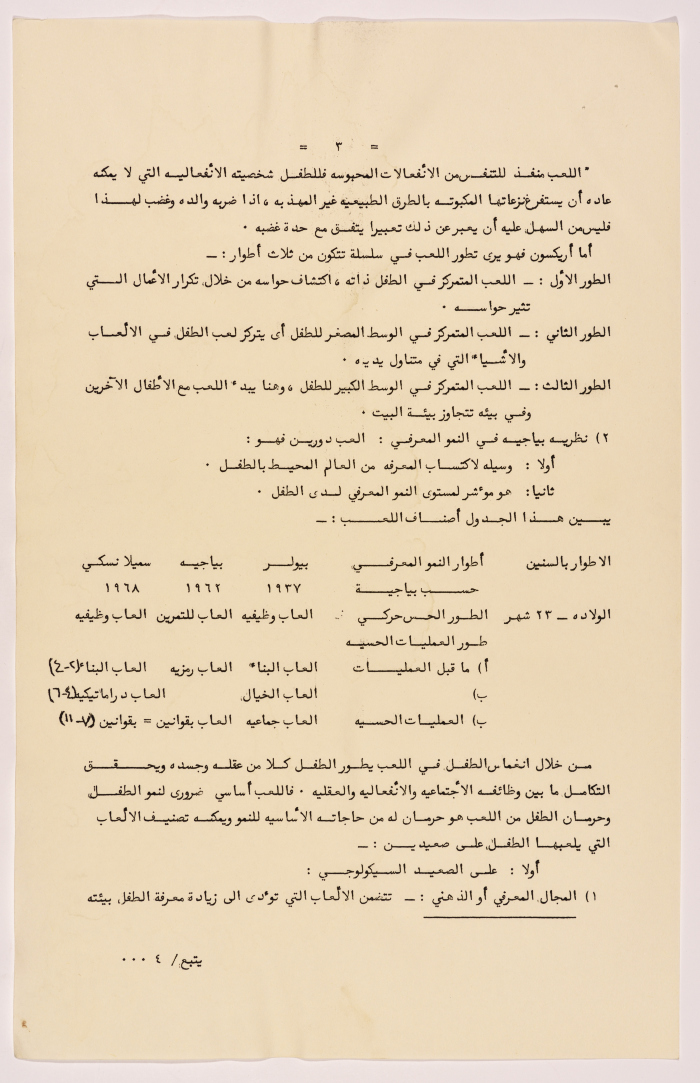 = ٣ =
" اللعب منفذ للتنفس من الانفعالات المحبوسه فللطفل شخصيته الانفعاليه التي لا يمكنه
عاده أن يستفرغ نزعاتها المكبوته بالطرق الطبيعيه غير المهذبه ، اذا ضربه والده وغضب لهذا
فليس من السهل عليه أن يعبر عن ذلك تعبيرا يتفق مع حدة غضبه ٠
أما أريكسون فهو يرى تطور اللعب في سلسلة تتكون من ثلاث أطوار : ـ
الطور الأول : ـ اللعب المتمركز في الطفل ذاته ، اكتشاف حواسه من خلال تكرار الأعمال التي
تثير حواسه ٠
الطور الثاني : ـ اللعب المتمركز في الوسط المصغر للطفل أى يتركز لعب الطفل في الألعاب
والأشياء التي في متناول يديه ٠
الطور الثالث : ـ اللعب المتمركز في الوسط الكبير للطفل ، وهنا يبدء اللعب مع الأطفال الآخرين
وفي بيئه تتجاوز بيئة البيت ٠
٢) نظريه بياجيه في النمو المعرفي : العب دورين فهو :
أولا : وسيله لاكتساب المعرفه من العالم المحيط بالطفل ٠
ثانيا : هو مؤشر لمستوى النمو المعرفي لدى الطفل ٠
يبين هذا الجدول أصناف اللعب : ـ
الاطوار بالسنين أطوار النمو المعرفي بيولر بياجيه سميلا نسكي
حسب بياجية ١٩٣٧ ١٩٦٢ ١٩٦٨
الولاده ـ ٢٣ شهر الطور الحس حركي العاب وظيفيه العاب للتمرين العاب وظيفيه
طور العمليات الحسيه
أ) ما قبل العمليات العاب البناء العاب رمزيه العاب البناء (٢-٤)
ب) العاب الخيال العاب دراماتيكيه (٤-٦)
ب) العمليات الحسيه العاب جماعيه العاب بقوانين = بقوانين (٧-١١)
من خلال انغماس الطفل في اللعب يطور الطفل كلا من عقله وجسده ويحقق
التكامل ما بين وظائفه الأجتماعيه والأنفعاليه والعقليه ٠ فاللعب أساسي ضرورى لنمو الطفل
وحرمان الطفل من اللعب هو حرمان له من حاجاته الأساسيه للنمو ويمكنه تصنيف الألعاب
التي يلعبها الطفل على صعيدين : ـ
أولا : على الصعيد السيكولوجي :
١) المجال المعرفي أو الذهني : ـ تتضمن الألعاب التي تؤدى الى زيادة معرفة الطفل بيئته
يتبع / ٤ ٠٠٠